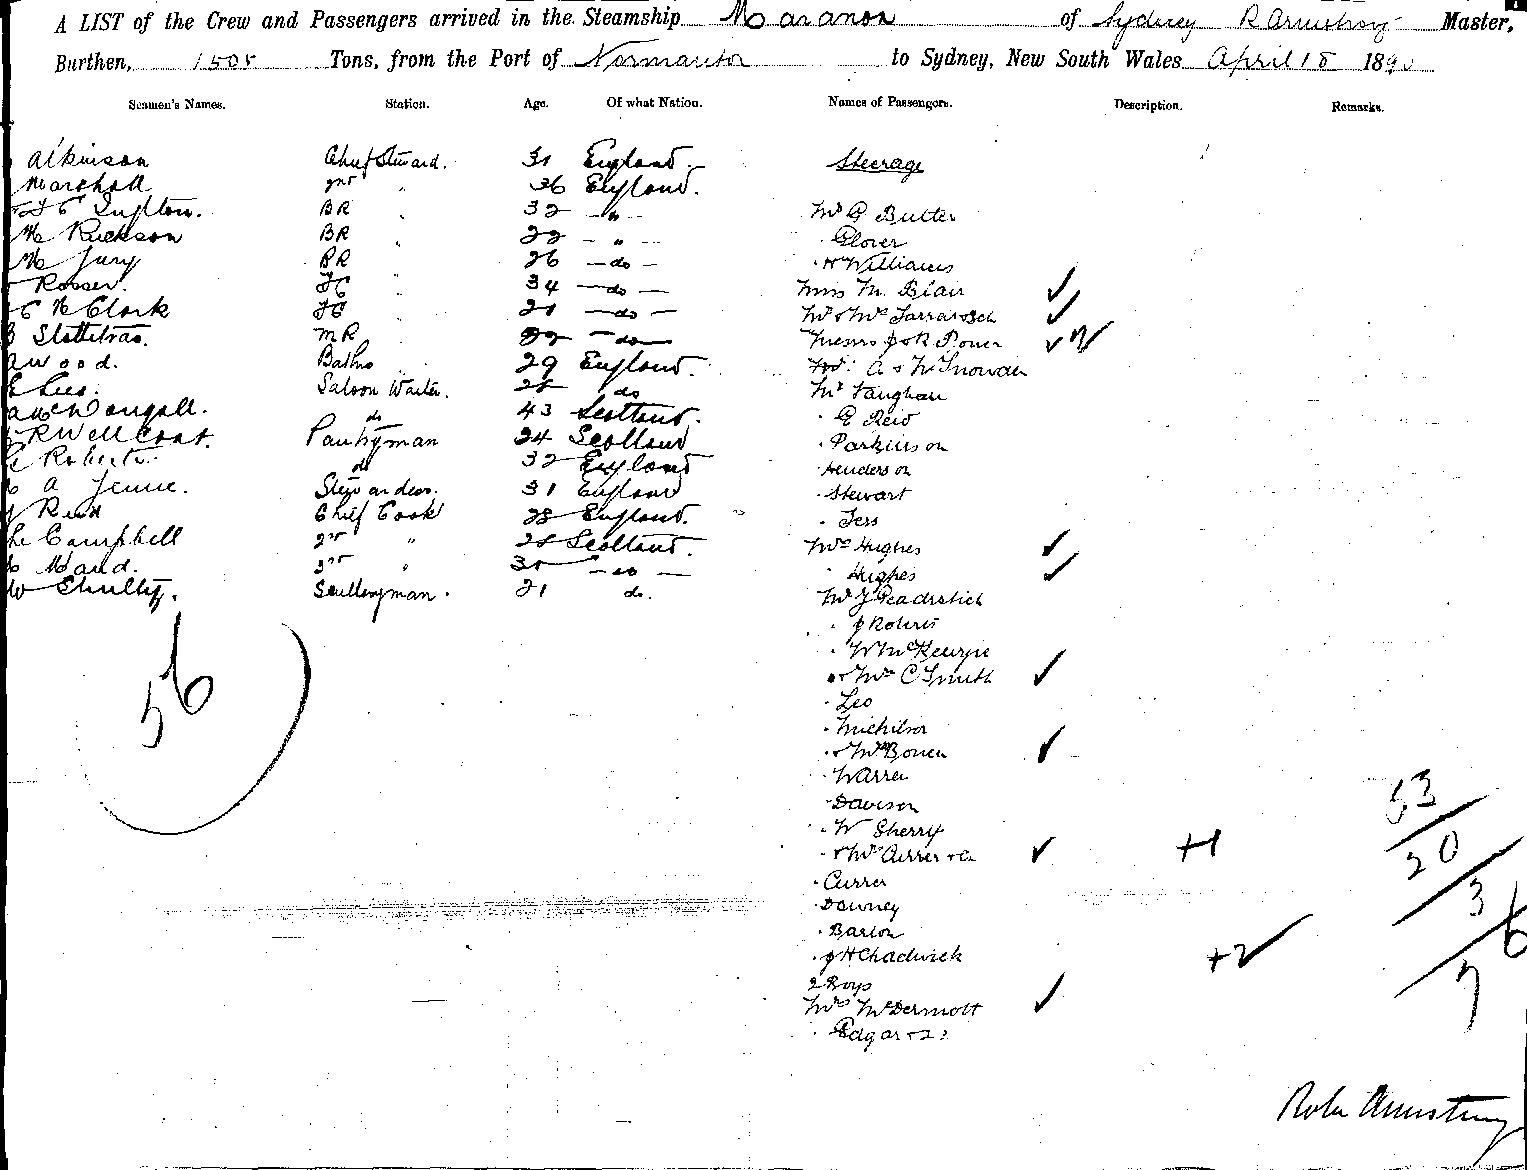 A LIST of the Crew and Passengers arrived in the Steamship Maranoa of Sydney R Armstrong Master,
Burthen, 1505 Tons, from the Port of Normanton to Sydney, New South Wales April 18 1890
Seamen's Names. Station. Age. Of what Nation. Names of Passengers. Description. Remarks.
Atkinson Chief Steward. 31 England. Steerage
Marshall 2nd " 26 England.
BR " 32 - " - Mr G Butler
BR 22 - " - " Glover
Jury BR 26 - do - " Williams
Rosser. 34 - do - Miss M. Blair
Clark 21 - do - Mr & Mrs
MR 22 - do - Messrs J & R Power
Wood. Baths 29 England. A & McSnowden
Lees. Saloon Waiter. 28 do Mr Vaughan
McDougall. do 43 Scotland. " G Reid
R Wellcoat. Pantryman 24 Scotland " Parkinson
Roberts. do 32 England Henderson
A Jenne. Stewardess. 31 England " Stewart
Reid Chief Cook 28 England. " Tess
Campbell 2nd " 28 Scotland. Mrs Hughes
Maud. 3rd " 30 - do - " Hughes
Sculleryman. 21 do. Mr J
56
" J Roberts
" W McKenzie
" & Mrs C Smith
" Leo
" Michelson
" & Mrs Bowen
" Warren
" Davison
" W Sherry
" & Mrs Currer +1
" Currer
" Downey
" Barton
" J H Chadwick +2
2 Boys
Mrs McDermott
" Edgar & 2
53
20
3
7
6
Robt Armstrong